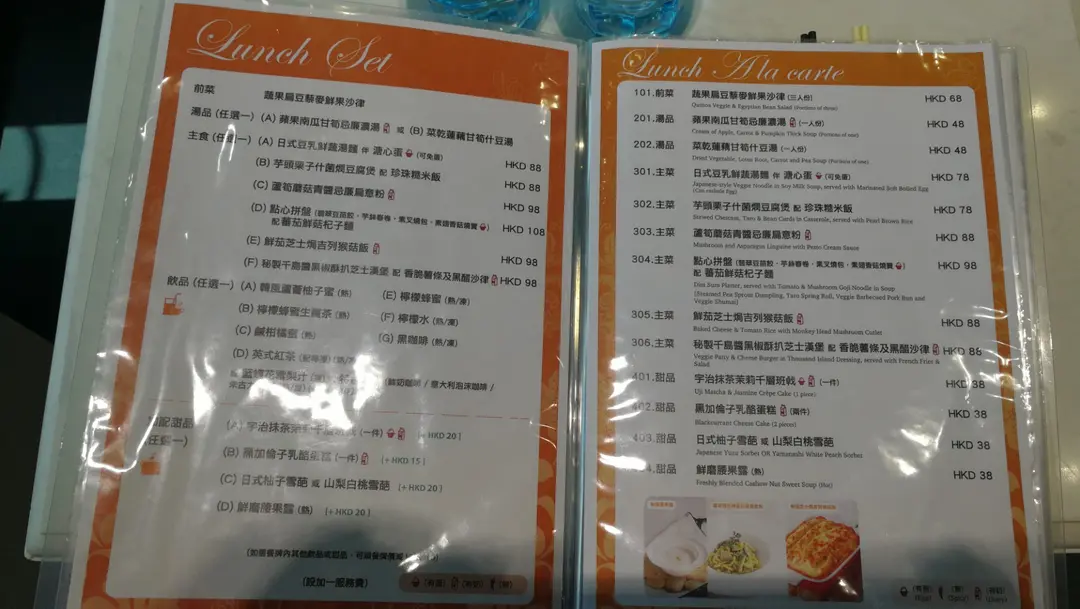 Lunch Set
前菜 蔬果扁豆藜麥鮮果沙律
湯品 (任選一) (A) 蘋果南瓜甘筍忌廉濃湯 或 (B) 菜乾蓮藕甘筍什豆湯
主食 (任選一) (A) 日式豆乳鮮蔬湯麵 伴 溏心蛋 (可免蛋) HKD 88
(B) 芋頭栗子什菌燜豆腐煲 配 珍珠糙米飯 HKD 88
(C) 蘆筍蘑菇青醬忌廉扁意粉 HKD 98
(D) 點心拼盤 (翡翠豆苗餃、芋絲春卷、素叉燒包、素頭香菇燒賣) HKD 108
配 蕃茄鮮菇杞子麵
(E) 鮮茄芝士焗吉列猴菇飯 HKD 98
(F) 秘製千島醬黑椒酥扒芝士漢堡 配 香脆薯條及黑醋沙律 HKD 98
飲品 (任選一) (A) 蘆薈柚子蜜 (熱) (E) 檸檬蜂蜜 (熱/凍)
(B) 檸檬蜂蜜生薑茶 (熱) (F) 檸檬水 (熱/凍)
(C) 鹹柑橘蜜 (熱) (G) 黑咖啡 (熱/凍)
(D) 英式紅茶
鮮奶咖啡 / 意大利泡沫咖啡 /
配甜品 (A) 宇治抹茶茉莉千層班戟 (一件) [+ HKD 20]
(任選一) (B) 黑加倫子乳酪蛋糕 (一件) [+ HKD 15]
(C) 日式柚子雪葩 或 山梨白桃雪葩 [+ HKD 20]
(D) 鮮磨腰果露 (熱) [+ HKD 20]
(設加一服務費)
Lunch A la carte
101.前菜 蔬果扁豆藜麥鮮果沙律 (三人份) HKD 68
Quinoa Veggie & Egyptian Bean Salad (Portions of three)
201.湯品 蘋果南瓜甘筍忌廉濃湯 (一人份) HKD 48
Cream of Apple, Carrot & Pumpkin Thick Soup (Portions of one)
202.湯品 菜乾蓮藕甘筍什豆湯 (一人份) HKD 48
Dried Vegetable, Lotus Root, Carrot and Pea Soup (Portions of one)
301.主菜 日式豆乳鮮蔬湯麵 伴 溏心蛋 (可免蛋) HKD 78
Japanese-style Veggie Noodle in Soy Milk Soup, served with Marinated Soft Boiled Egg
(Can exclude Egg)
302.主菜 芋頭栗子什菌燜豆腐煲 配 珍珠糙米飯 HKD 78
Stewed Chestnut, Taro & Bean Curds in Casserole, served with Pearl Brown Rice
303.主菜 蘆筍蘑菇青醬忌廉扁意粉 HKD 88
Mushroom and Asparagus Linguine with Pesto Cream Sauce
304.主菜 點心拼盤 (翡翠豆苗餃、芋絲春卷、素叉燒包、素頭香菇燒賣) HKD 98
配 蕃茄鮮菇杞子麵
Dim Sum Platter, served with Tomato & Mushroom Goji Noodle in Soup
(Steamed Pea Sprouts Dumpling, Taro Spring Roll, Veggie Barbecued Pork Bun and
Veggie Shumai)
305.主菜 鮮茄芝士焗吉列猴菇飯 HKD 88
Baked Cheese & Tomato Rice with Monkey Head Mushroom Cutlet
306.主菜 秘製千島醬黑椒酥扒芝士漢堡 配 香脆薯條及黑醋沙律 HKD 88
Veggie Patty & Cheese Burger in Thousand Island Dressing, served with French Fries &
Salad
401.甜品 宇治抹茶茉莉千層班戟 (一件) HKD 38
Uji Matcha & Jasmine Crêpe Cake (1 piece)
402.甜品 黑加倫子乳酪蛋糕 (兩件) HKD 38
Blackcurrant Cheese Cake (2 pieces)
403.甜品 日式柚子雪葩 或 山梨白桃雪葩 HKD 38
Japanese Yuzu Sorbet OR Yamanashi White Peach Sorbet
甜品 鮮磨腰果露 (熱) HKD 38
Freshly Blended Cashew Nut Sweet Soup (Hot)